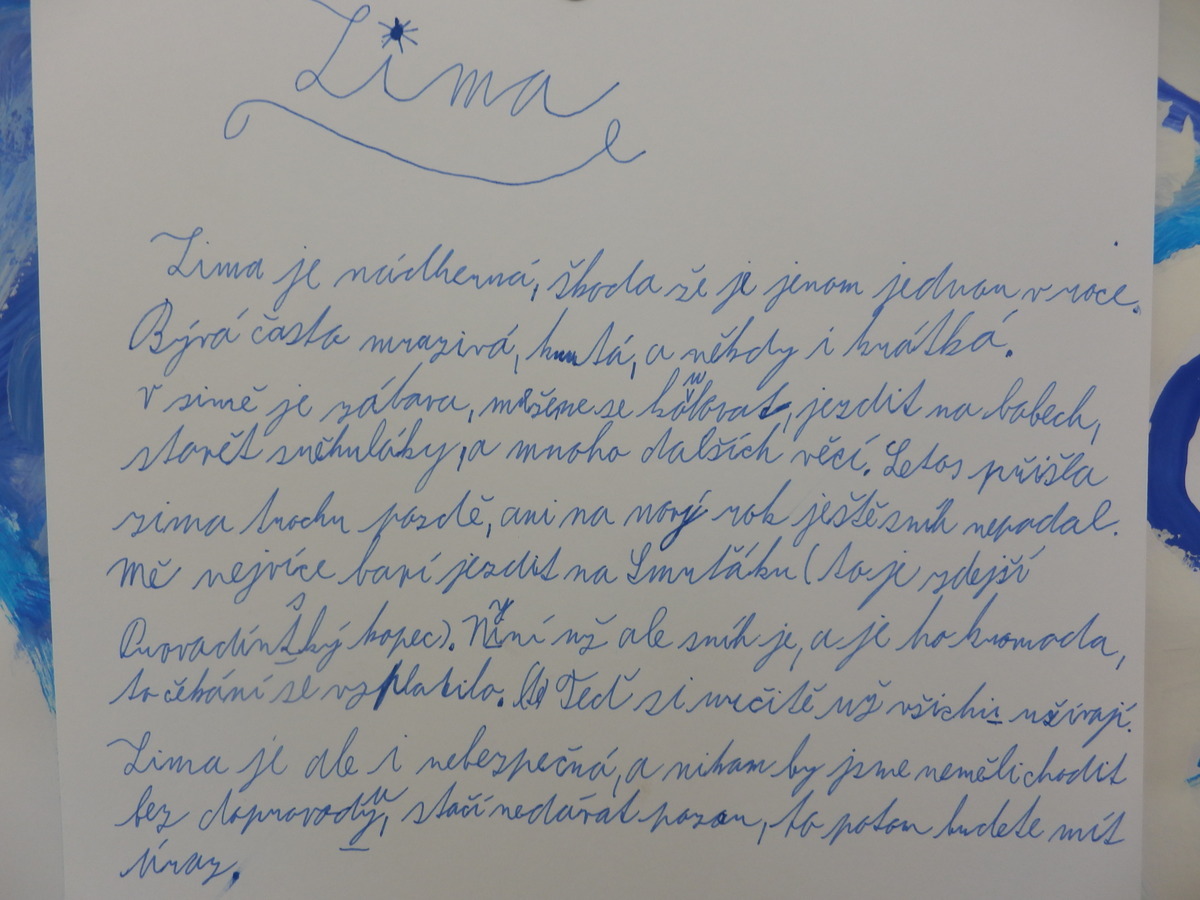 Zima
Zima je nádherná, škoda že je jenom jednou v roce.
Bývá často mrazivá, krutá, a někdy i krátká.
V zimě je zábava, můžeme se koulovat, jezdit na bobech,
stavět sněhuláky, a mnoho dalších věcí. Letos přišla
zima trochu pozdě, ani na nový rok ještě sníh nepadal.
Mě nejvíce baví jezdit na Smuťáku (to je zdejší
kopec). Nyní už ale sníh je, a je ho hromada,
to čekání se vyplatilo. Teď si určitě už všichni užívají.
Zima je ale i nebezpečná, a nikam by jsme neměli chodit
bez doprovodu, stačí nedávat pozor, to potom budete mít
úraz.